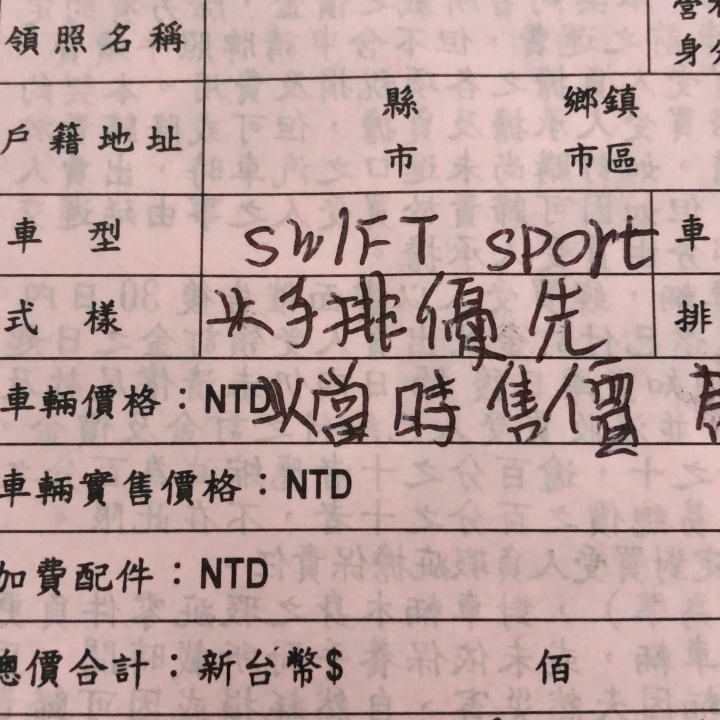 領照名稱
戶籍地址 縣 鄉鎮
市 市區
車型 SWIFT SPORT 車
式樣 手排優先 排
車輛價格：NTD 以當時售價
車輛實售價格：NTD
加費配件：NTD
總價合計：新台幣$ 佰